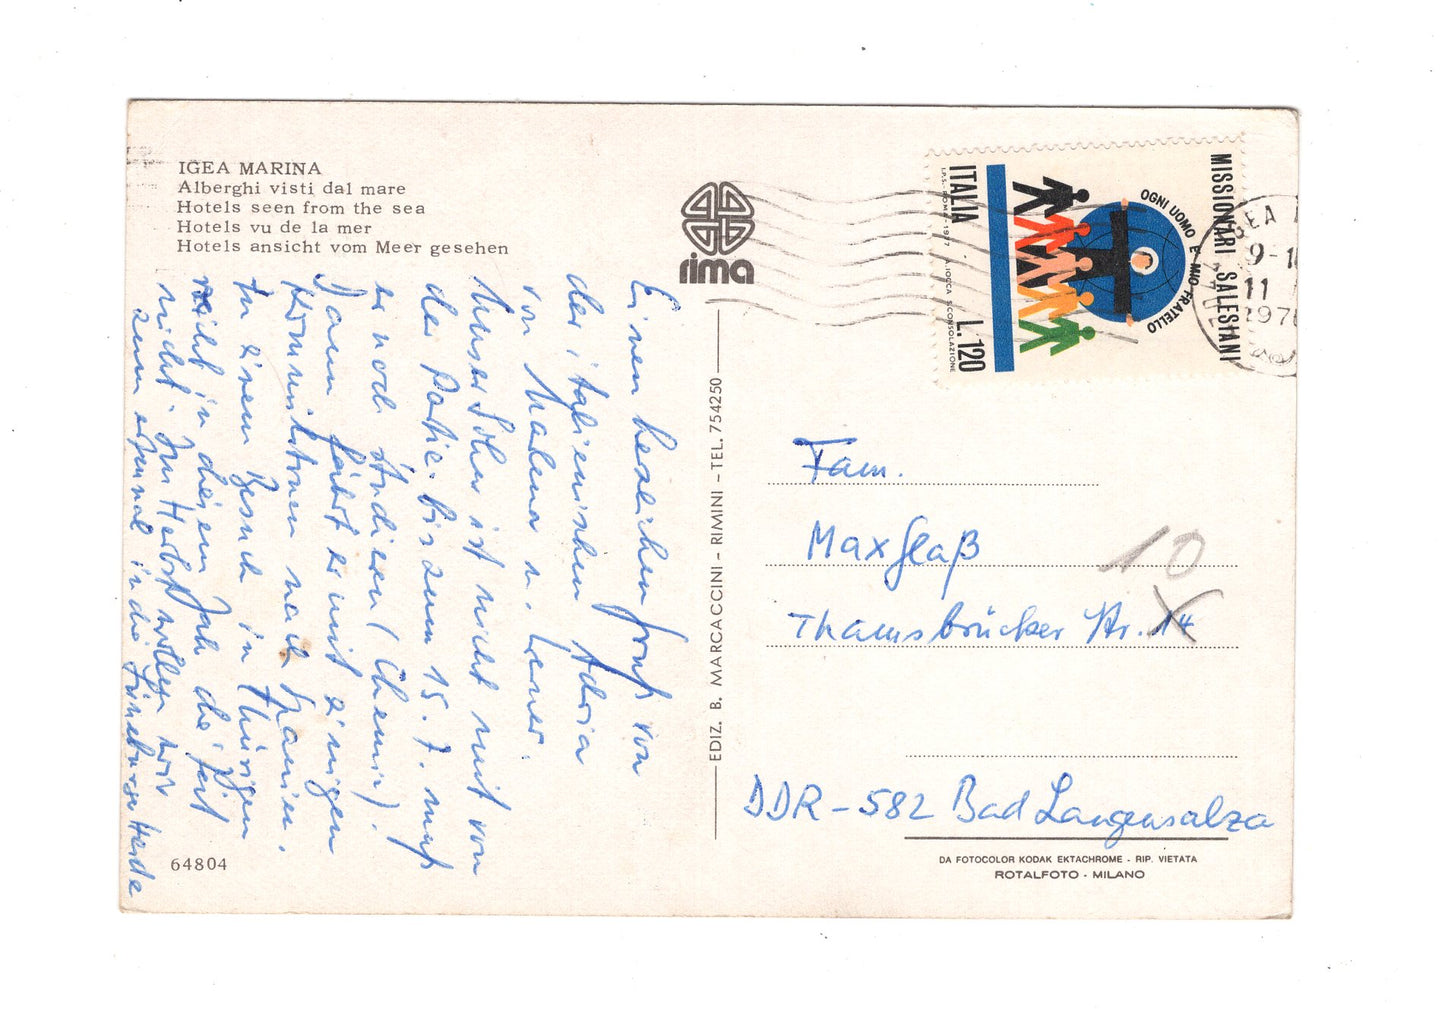 IGEA MARINA
Alberghi visti dal mare
Hotels seen from the sea
Hotels vu de la mer
Hotels ansicht vom Meer gesehen
Einen herzlichen Gruß von
der italienischen Adria
von Malena u. Werner.
Unser Sohn ist nicht mit von
der Partie. bis zum 15.7. muß
er noch studieren (Chemie).
Dann fährt er mit einigen
Kommilitonen nach Spanien.
Zu einem Besuch in Thüringen
reicht in diesem Jahr die Zeit
nicht. Im Herbst wollen wir
zum einmal in die Lüneburger Heide
64804
rima
EDIZ. B. MARCACCINI - RIMINI - TEL. 754250
MISSIONARI SALESIANI
OGNI UOMO È MIO FRATELLO
ITALIA L.120
I.P.S.-ROMA-1977 A.IOCCA S.CONSOLAZIONE
IGEA
9-1
11
197
Fam.
Max Glaß
Thamsbrücker Str. 14
10
DDR - 582 Bad Langensalza
DA FOTOCOLOR KODAK EKTACHROME - RIP. VIETATA
ROTALFOTO - MILANO